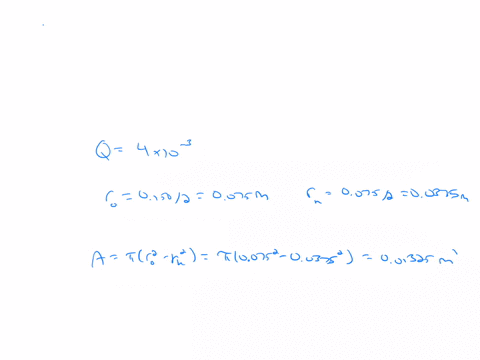 Q = 4×10⁻³
r₀ = 0.150/2 = 0.075m rₙ = 0.075/2 = 0.0375m
A = π(r₀² - rₙ²) = π(0.075² - 0.0375²) = 0.01325 m'